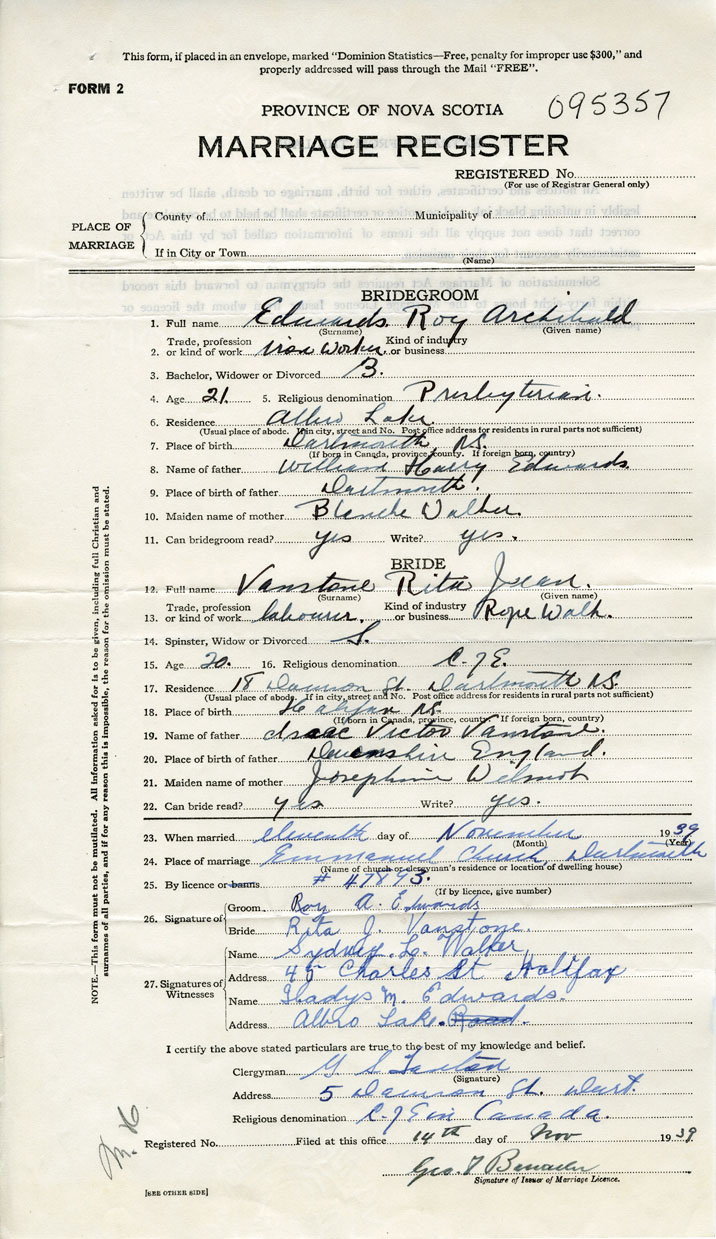 This form, if placed in an envelope, marked "Dominion Statistics—Free, penalty for improper use $300," and
properly addressed will pass through the Mail "FREE".
FORM 2
PROVINCE OF NOVA SCOTIA 095357
MARRIAGE REGISTER
REGISTERED No.
(For use of Registrar General only)
PLACE OF MARRIAGE
County of Municipality of
If in City or Town
(Name)
BRIDEGROOM
1. Full name Edwards Roy Archibald
(Surname) (Given name)
2. Trade, profession or kind of work Iron Worker. Kind of industry or business
3. Bachelor, Widower or Divorced B.
4. Age 21 5. Religious denomination Presbyterian.
6. Residence Albro Lake
(Usual place of abode. If in city, street and No. Post office address for residents in rural parts not sufficient)
7. Place of birth Dartmouth NS.
(If born in Canada, province, county. If foreign born, country)
8. Name of father William Harry Edwards.
9. Place of birth of father Dartmouth.
10. Maiden name of mother Blanche Walker.
11. Can bridegroom read? yes Write? yes.
BRIDE
12. Full name Vanstone Rita Jean.
(Surname) (Given name)
13. Trade, profession or kind of work labourer. Kind of industry or business Rope Walk.
14. Spinster, Widow or Divorced S.
15. Age 20. 16. Religious denomination C. of E.
17. Residence 18 Dawson St. Dartmouth NS.
(Usual place of abode. If in city, street and No. Post office address for residents in rural parts not sufficient)
18. Place of birth Halifax NS.
(If born in Canada, province, county. If foreign born, country)
19. Name of father Isaac Victor Vanstone.
20. Place of birth of father Devonshire England.
21. Maiden name of mother Josephine Wilmot
22. Can bride read? yes Write? yes.
23. When married eleventh day of November 1939
(Month) (Year)
24. Place of marriage Emmanuel Church, Dartmouth
(Name of church or clergyman's residence or location of dwelling house)
25. By licence or banns # 47873.
(If by licence, give number)
26. Signature of
Groom Roy A. Edwards
Bride Rita J. Vanstone.
27. Signatures of Witnesses
Name Sydney L. Walker
Address 45 Charles St Halifax
Name Gladys M. Edwards.
Address Albro Lake. Road.
I certify the above stated particulars are true to the best of my knowledge and belief.
Clergyman G. S.
(Signature)
Address 5 Dawson St. Dart.
Religious denomination C. of E in Canada.
Registered No. Filed at this office 14th day of Nov 1939.
Geo.
Signature of Issuer of Marriage Licence.
[SEE OTHER SIDE]
NOTE.—This form must not be mutilated. All information asked for is to be given, including full Christian and
surnames of all parties, and if for any reason this is impossible, the reason for the omission must be stated.